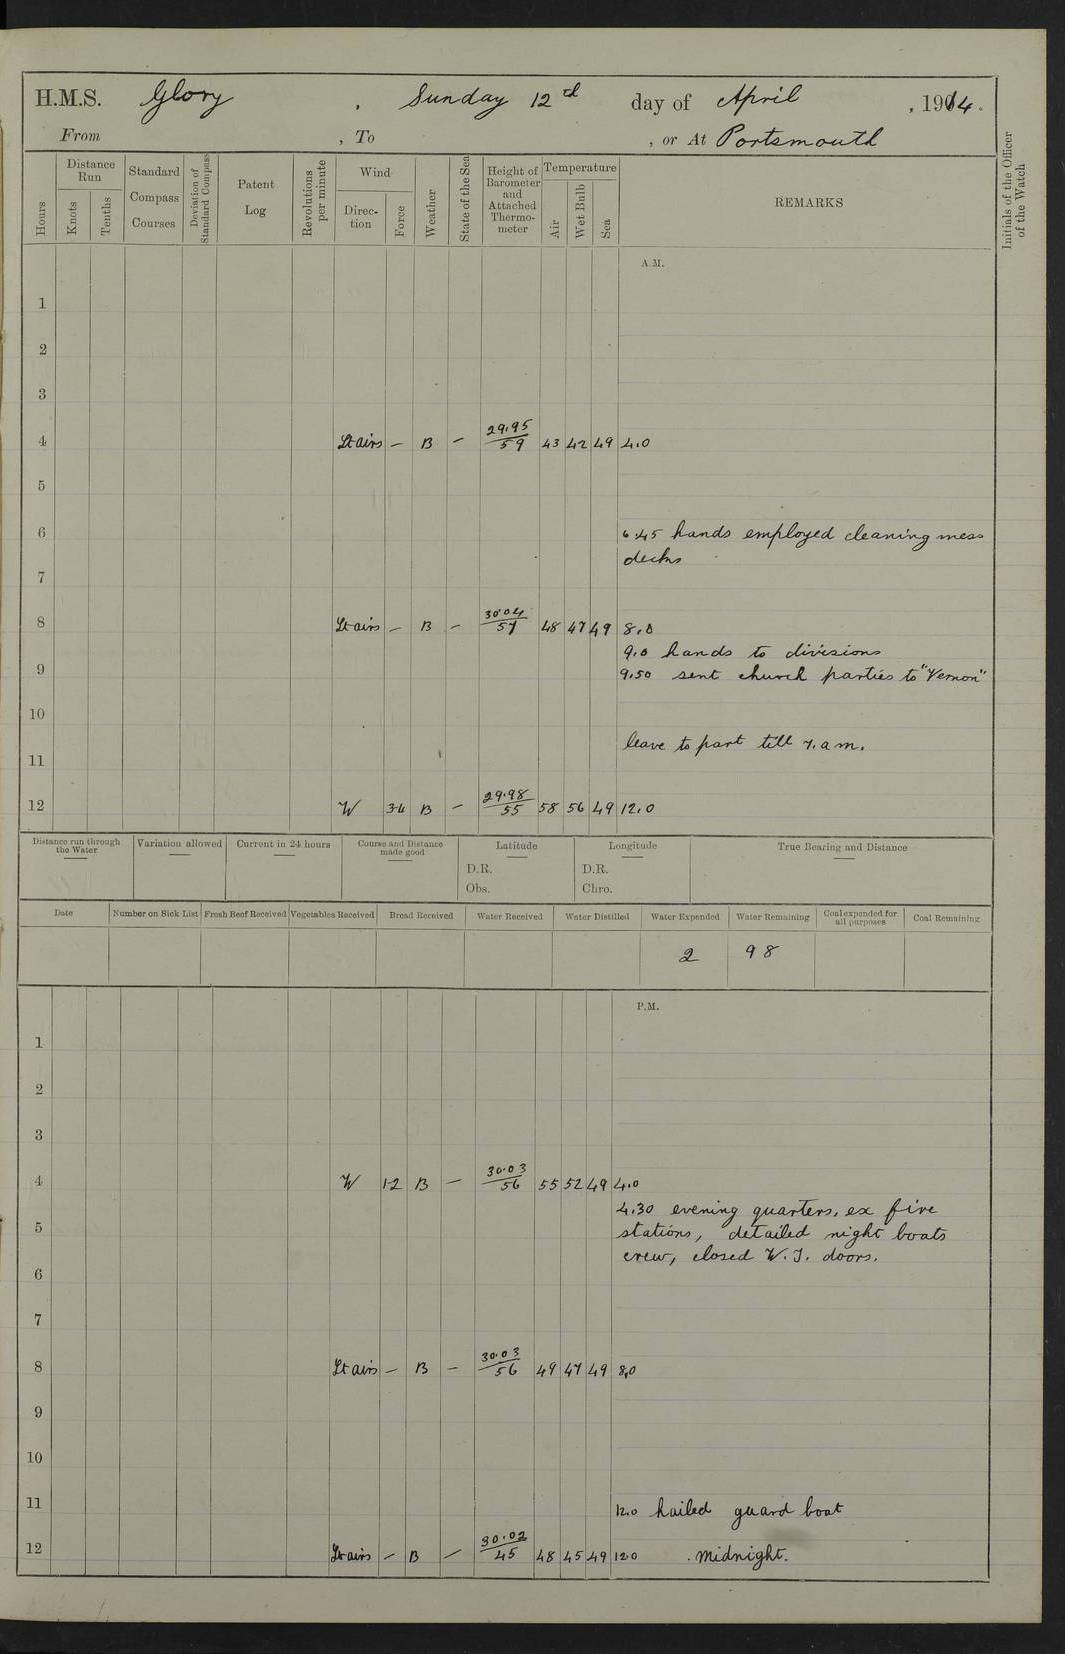 H.M.S. Glory , Sunday 12th day of April , 1914.
From , To , or At Portsmouth
Hours
Distance Run
Knots
Tenths
Standard Compass Courses
Deviation of Standard Compass
Patent Log
Revolutions per minute
Wind
Direction
Force
Weather
State of the Sea
Height of Barometer and Attached Thermometer
Temperature
Air
Wet Bulb
Sea
REMARKS
Initials of the Officer of the Watch
A.M.
1
2
3
4 Lt airs — B — 29.95/59 43 42 49 4.0
5
6 6.45 hands employed cleaning mess
decks
7
8 Lt airs — B — 30.04/57 48 47 49 8.0
9.0 hands to divisions
9 9.50 sent church parties to "Vernon"
10
leave to part till 7. a m.
11
12 W 3-4 B — 29.98/55 58 56 49 12.0
Distance run through the Water
Variation allowed
Current in 24 hours
Course and Distance made good
Latitude
D.R.
Obs.
Longitude
D.R.
Chro.
True Bearing and Distance
Date Number on Sick List Fresh Beef Received Vegetables Received Bread Received Water Received Water Distilled Water Expended Water Remaining Coal expended for all purposes Coal Remaining
2 98
P.M.
1
2
3
4 W 1-2 B — 30.03/56 55 52 49 4.0
4.30 evening quarters, ex fire
5 stations, detailed night boats
crew, closed W.T. doors.
6
7
8 Lt airs — B — 30.03/56 49 47 49 8.0
9
10
11 12.0 hailed guard boat
12 Lt airs — B — 30.02/45 48 45 49 12.0 . Midnight.